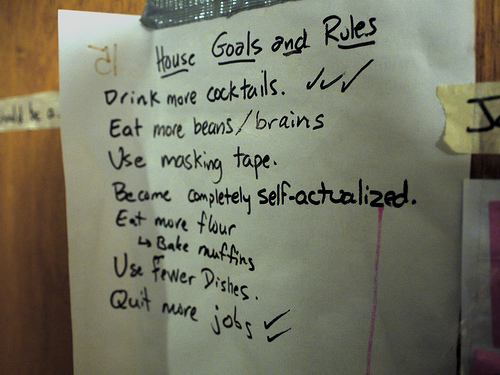 House Goals and Rules
Drink more cocktails. ✓✓✓
Eat more beans/brains
Use masking tape.
Become completely self-actualized.
Eat more flour
↳ Bake muffins
Use Fewer Dishes.
Quit more jobs ✓✓
be a
J